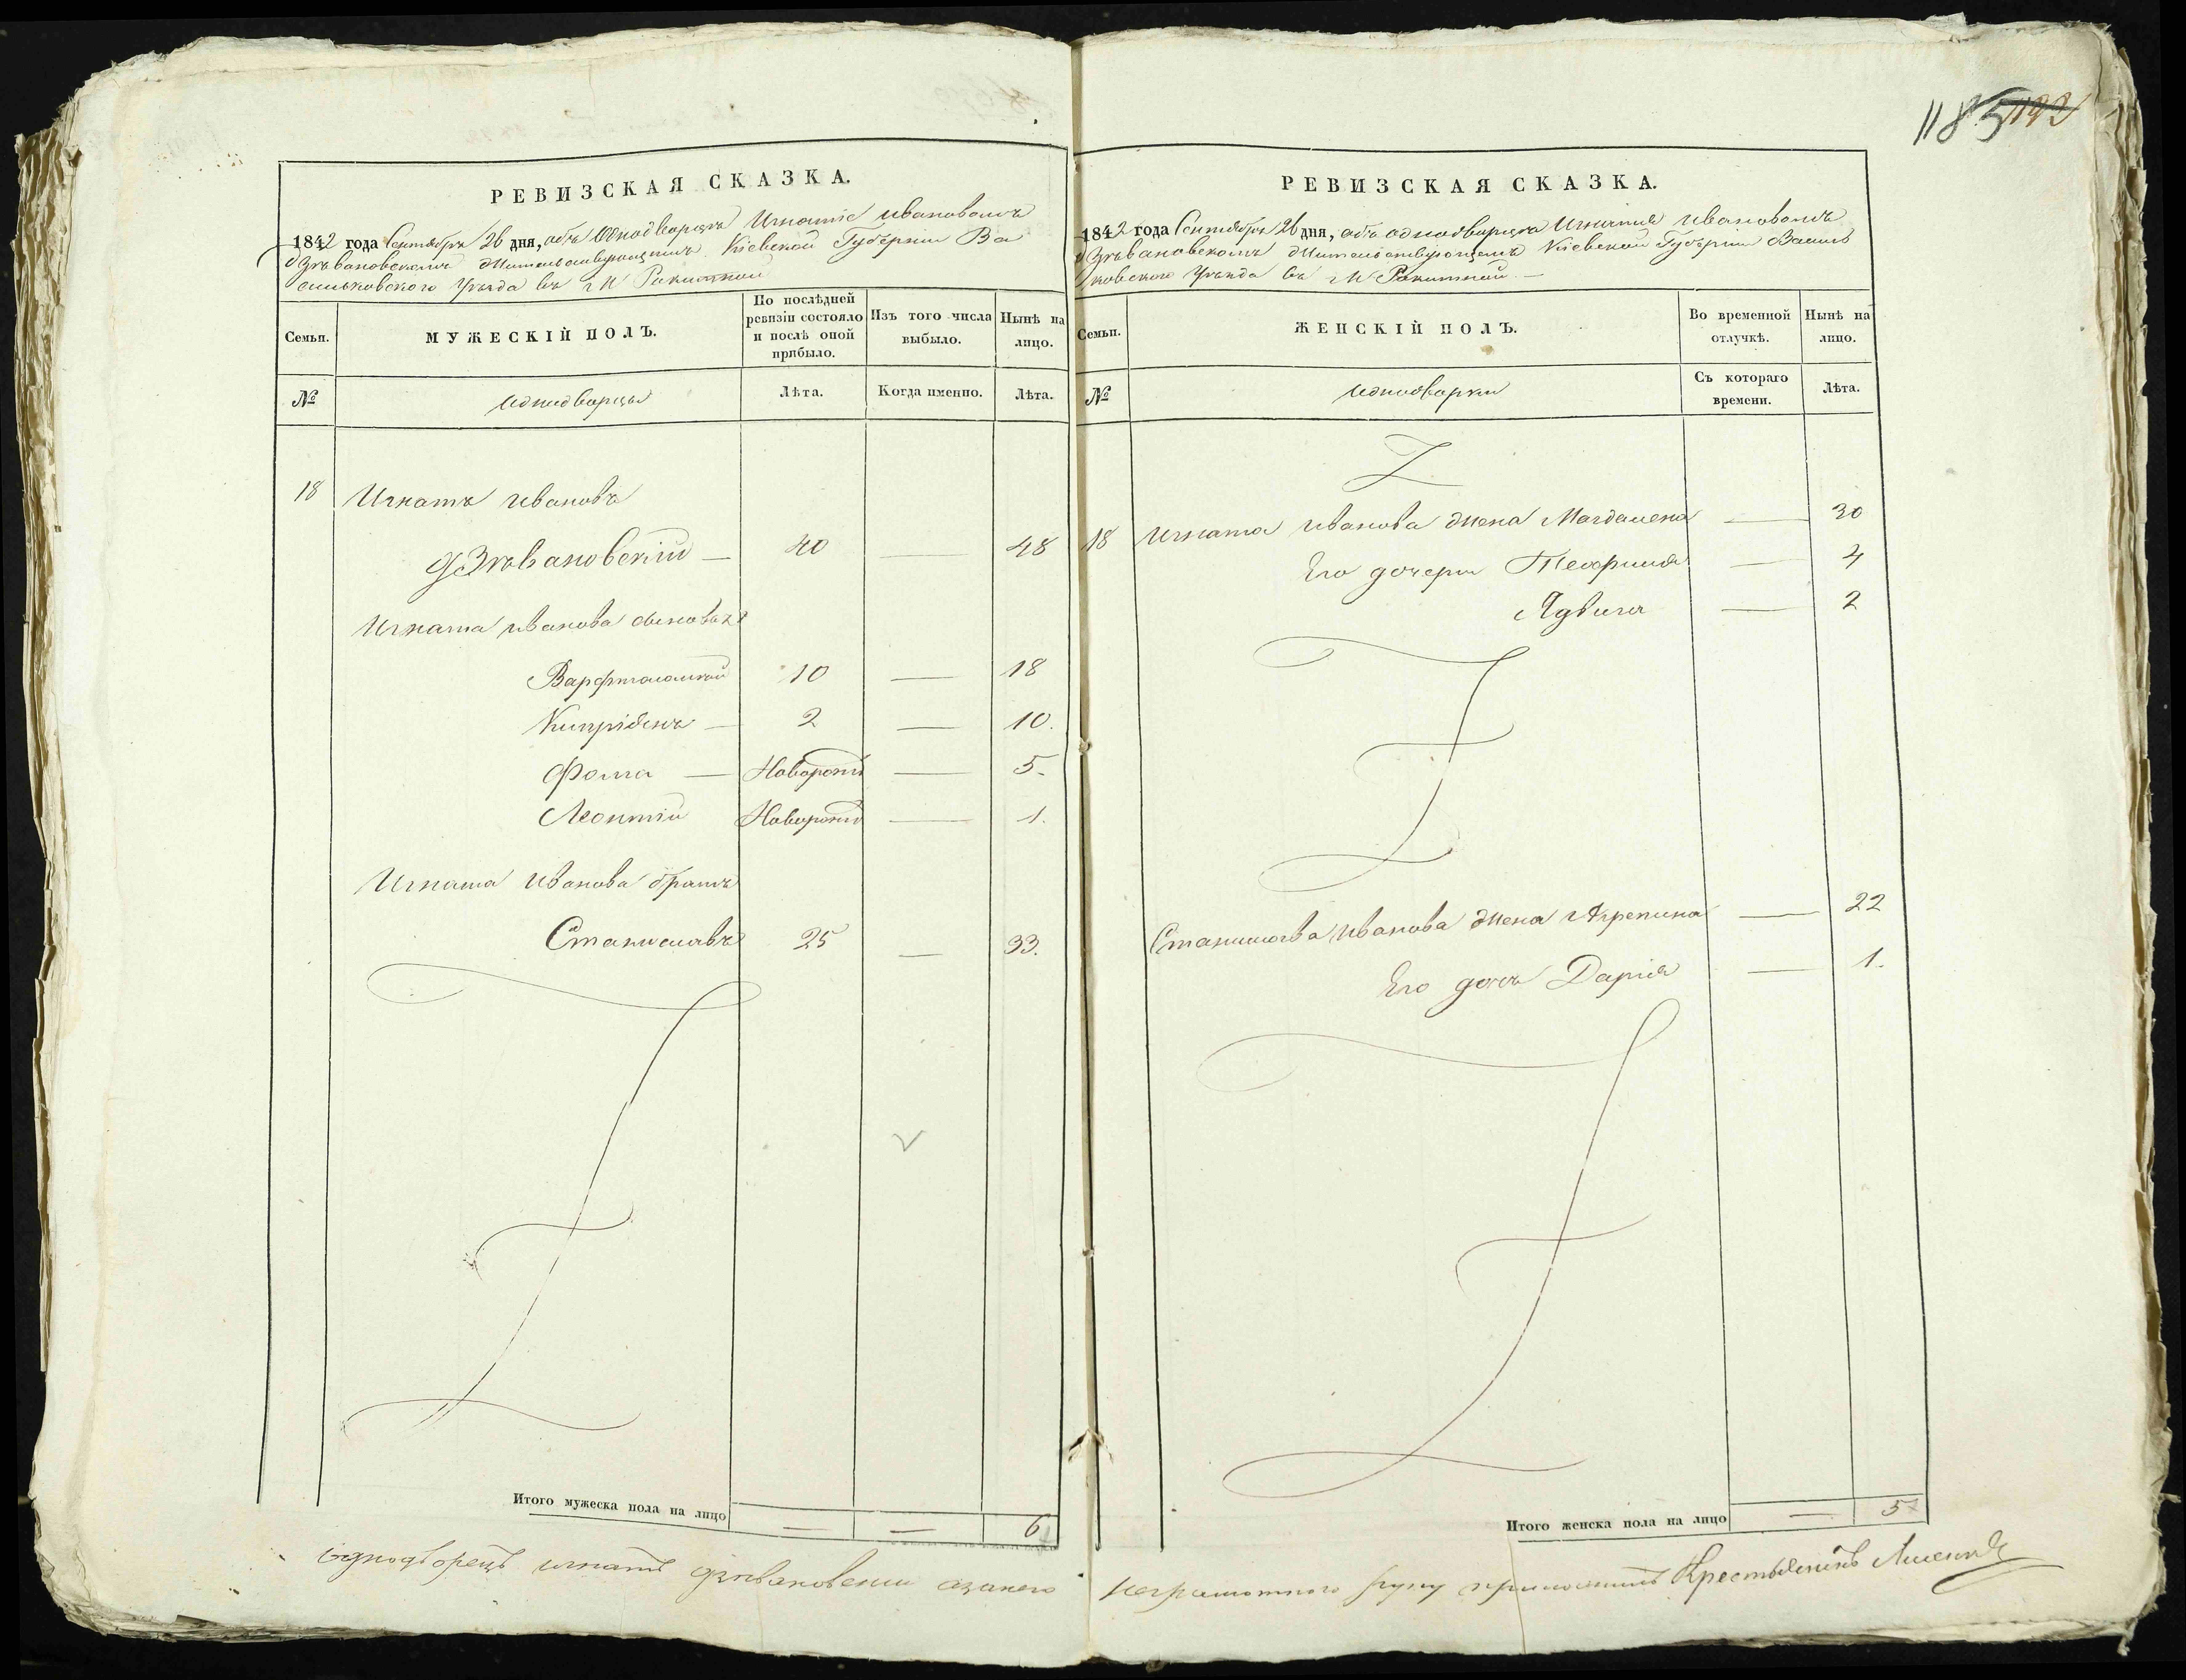 1185 1192
РЕВИЗСКАЯ СКАЗКА.
1842 года Сентября 26 дня, объ Однодворцѣ Игнатіѣ Ивановомъ
Дзѣвановскомъ жительствующимъ Кіевской Губерніи Ва
сильковского уѣзда въ М Ракитной
Семьи.
МУЖЕСКІЙ ПОЛЪ.
По послѣдней ревизіи состояло и послѣ оной прибыло.
Изъ того числа выбыло.
Нынѣ на лицо.
№
Однодворцы
Лѣта.
Когда именно.
Лѣта.
18 Игнатъ Ивановъ
Дзѣвановскій — 40 — 48
Игната Иванова сыновья
Варфтоломей 10 — 18
Кипріянъ — 2 — 10.
Фома — Новорожд — 5.
Леонтій Новорожд — 1.
Игната Иванова братъ
Станиславъ 25 — 33.
Итого мужеска пола на лицо — — 6
Однодворецъ Игнатъ Дзѣвановскии азанего
РЕВИЗСКАЯ СКАЗКА.
1842 года Сентября 26 дня, объ однодворцѣ Игнатіѣ Ивановомъ
Дзѣвановскомъ жительствующемъ Кіевской Губерніи Василь
ковского уѣзда въ М Ракитной —
Семьи.
ЖЕНСКІЙ ПОЛЪ.
Во временной отлучкѣ.
Нынѣ на лицо.
№
Однодворки
Съ котораго времени.
Лѣта.
18 Игната Иванова жена Магдалена — 30
Его дочери Теофилія — 4
Ядвига — 2
Станислава Иванова жена Агрепина — 22
Его дочь Дарія — 1.
Итого женска пола на лицо — 5
неграмотного руку приложилъ Крестьянинъ